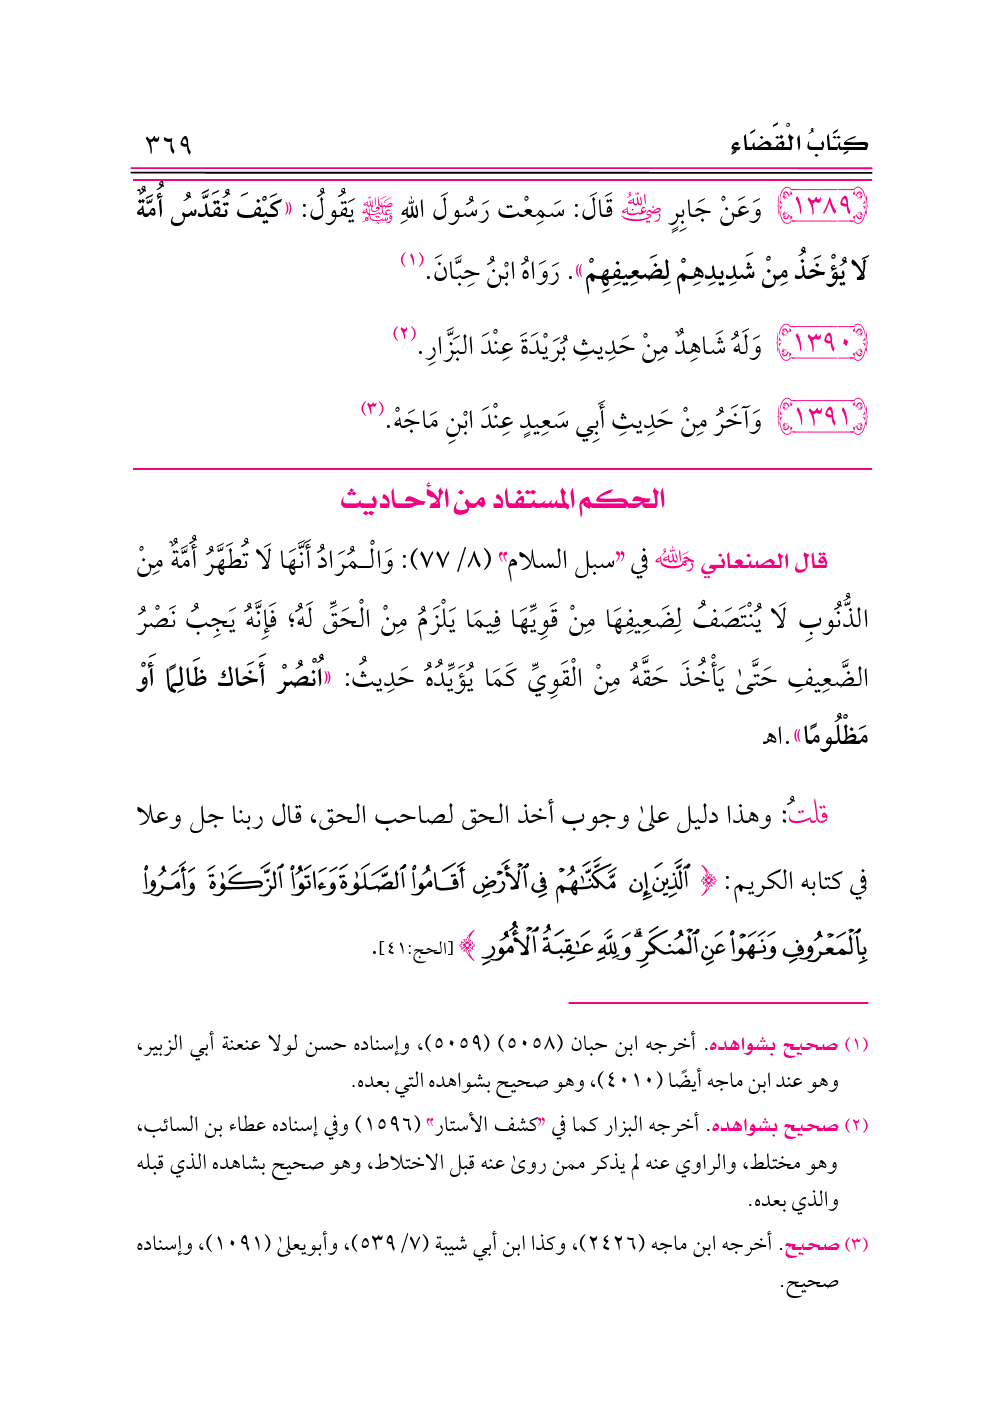 كِتَابُ الْقَضَاءِ ٣٦٩
١٣٨٩ وَعَنْ جَابِرٍ رضي الله عنه قَالَ: سَمِعْت رَسُولَ اللهِ ﷺ يَقُولُ: «كَيْفَ تُقَدَّسُ أُمَّةٌ
لَا يُؤْخَذُ مِنْ شَدِيدِهِمْ لِضَعِيفِهِمْ». رَوَاهُ ابْنُ حِبَّانَ.(١)
١٣٩٠ وَلَهُ شَاهِدٌ مِنْ حَدِيثِ بُرَيْدَةَ عِنْدَ البَزَّارِ.(٢)
١٣٩١ وَآخَرُ مِنْ حَدِيثِ أَبِي سَعِيدٍ عِنْدَ ابْنِ مَاجَهْ.(٣)
الحكم المستفاد من الأحاديث
قال الصنعاني رحمه الله في "سبل السلام" (٨/ ٧٧): وَالْـمُرَادُ أَنَّهَا لَا تُطَهَّرُ أُمَّةٌ مِنْ
الذُّنُوبِ لَا يُنْتَصَفُ لِضَعِيفِهَا مِنْ قَوِيِّهَا فِيمَا يَلْزَمُ مِنْ الْحَقِّ لَهُ؛ فَإِنَّهُ يَجِبُ نَصْرُ
الضَّعِيفِ حَتَّىٰ يَأْخُذَ حَقَّهُ مِنْ الْقَوِيِّ كَمَا يُؤَيِّدُهُ حَدِيثُ: «اُنْصُرْ أَخَاك ظَالِمًا أَوْ
مَظْلُومًا».اهـ
قلتُ: وهذا دليل علىٰ وجوب أخذ الحق لصاحب الحق، قال ربنا جل وعلا
في كتابه الكريم: ﴿ ٱلَّذِينَ إِن مَّكَّنَّٰهُمْ فِي ٱلْأَرْضِ أَقَامُوا۟ ٱلصَّلَوٰةَ وَءَاتَوُا۟ ٱلزَّكَوٰةَ وَأَمَرُوا۟
بِٱلْمَعْرُوفِ وَنَهَوْا۟ عَنِ ٱلْمُنكَرِ ۗ وَلِلَّهِ عَٰقِبَةُ ٱلْأُمُورِ ﴾ [الحج:٤١].
(١) صحيح بشواهده. أخرجه ابن حبان (٥٠٥٨) (٥٠٥٩)، وإسناده حسن لولا عنعنة أبي الزبير،
وهو عند ابن ماجه أيضًا (٤٠١٠)، وهو صحيح بشواهده التي بعده.
(٢) صحيح بشواهده. أخرجه البزار كما في "كشف الأستار" (١٥٩٦) وفي إسناده عطاء بن السائب،
وهو مختلط، والراوي عنه لم يذكر ممن روىٰ عنه قبل الاختلاط، وهو صحيح بشاهده الذي قبله
والذي بعده.
(٣) صحيح. أخرجه ابن ماجه (٢٤٢٦)، وكذا ابن أبي شيبة (٧/ ٥٣٩)، وأبويعلىٰ (١٠٩١)، وإسناده
صحيح.